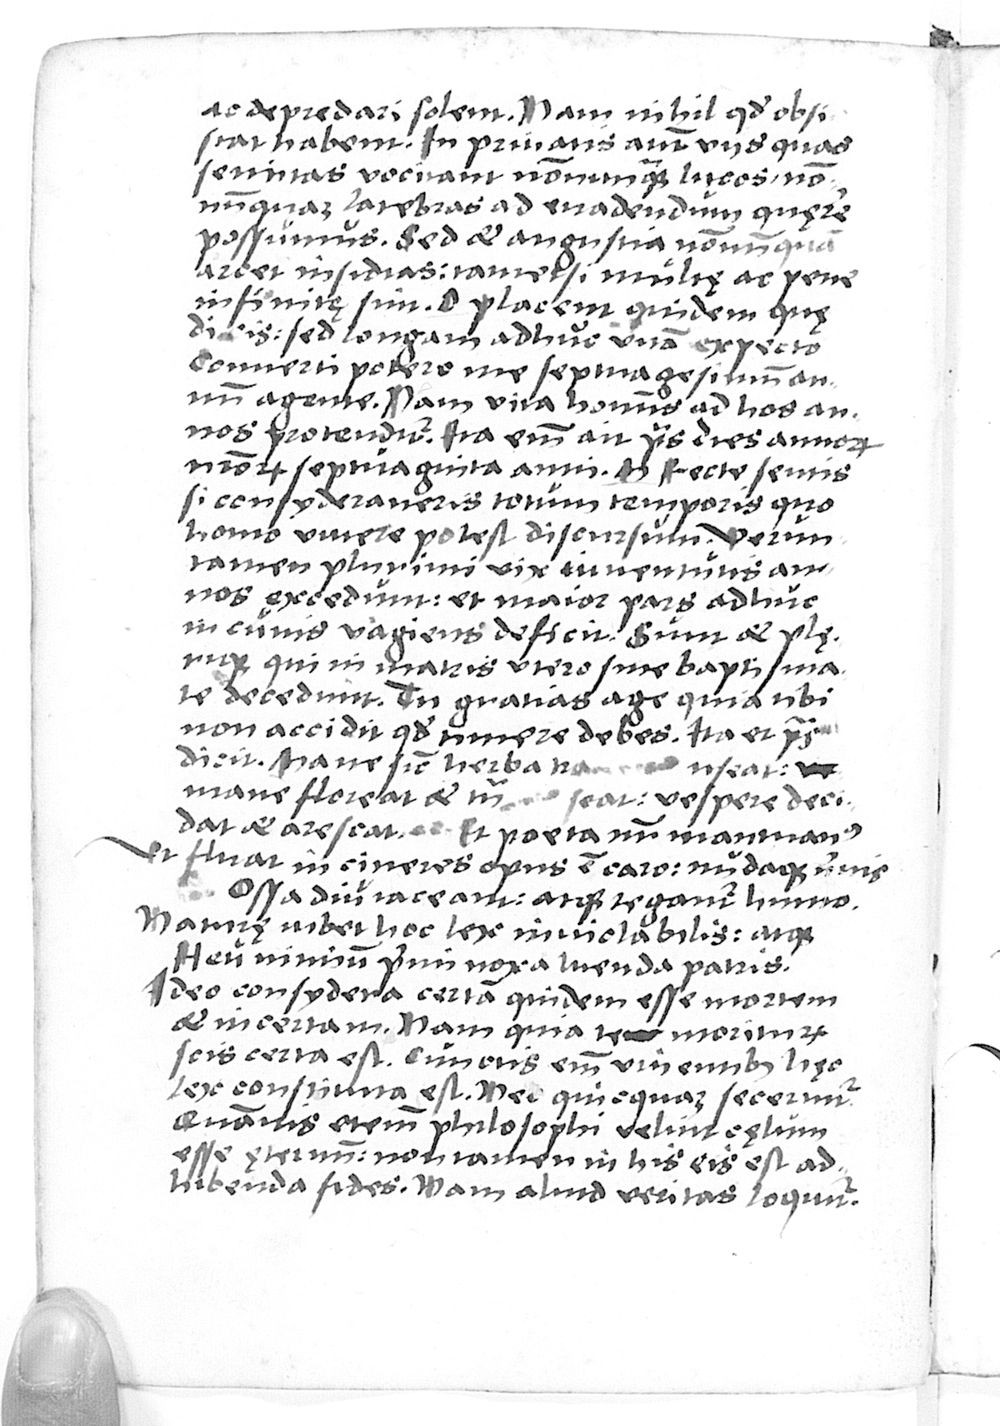 ac depredari solent. Nam nihil qď obsi
stat habent. In priuatis aut̃ viis quas
semitas vocitant nõnunqꝫ lucos, nõ-
nũquaꝫ latebras ad euadendum quęrẽ
possumus. Sed & angustia nõnũquã
arcet insidias: tametsi multę ac pene
infinitę sint. D placent quidem quę
dicis: sed longam adhuc vitã expecto
Conuerti potero me septuagesimũ an-
nũ agente. Nam vita hoĩnis ad hos an-
nos protenditᷣ. Ita em̃ ait p̃s dies annoꝝ
nr̃oꝝ septuaginta anni. H Recte sentis
si consyderaueris totum temporis quo
homo viuere potest discursum. Verun-
tamen plurimi vix iuuentutis an-
nos excedunt: et maior pars adhuc
in cunis vagiens deficit. Sunt & plę-
riqꝫ qui in matris vtero sine baptisma-
te decedunt. Tu gratias age quia tibi
non accidit qď timere debes. Ita et p̃s
dicit. Mane sic̃ herba tra nseat:
mane floreat & tr̃ seat: vespere deci-
dat & arescat. Et poeta nr̃ mantuanꝰ
Vt fluat in cineres opus ẽ caro: nudaqꝫ vermis
Ossa diu iaceant: atqꝫ tegantᷣ humo.
Naturę iubet hoc lex inuiolabilis: atqꝫ
Heu nimiũ p̃mi noxa luenda patris.
Ideo consydera certã quidem esse mortem
& incertam. Nam quia te morituꝝ
scis certa est. Cunctis em̃ viuentibꝫ hęc
lex constituta est. Nec quicquaꝫ secernitᷣ.
Quãuis etem̃ philosophi velint cęlum
esse ęternũ: non tamen in his eis est ad-
hibenda fides. Nam aliud veritas loquitᷣ.